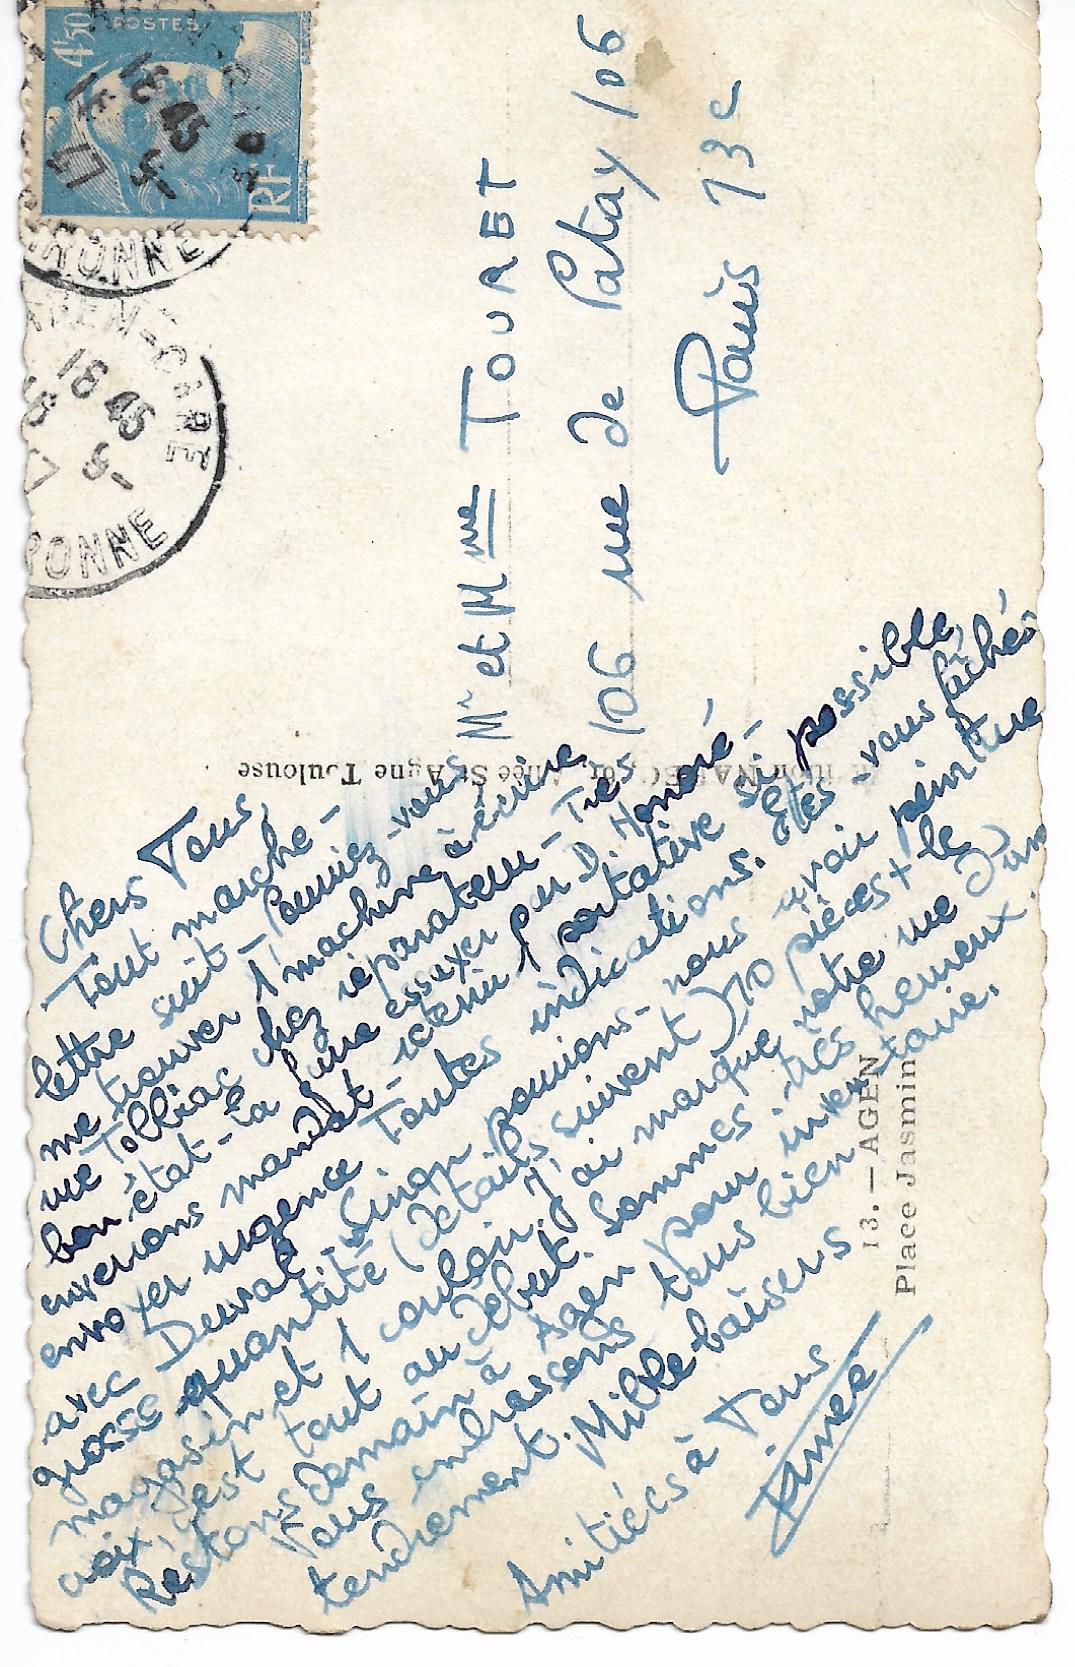 POSTES
4f50
RF
18 45
5-
GARONNE
AGEN-GARE
18 45
5-
GARONNE
Mr et Mme TOURET
106 rue de Patay 106
Paris 13e
Edition NAREC, or, Allée St Agne Toulouse
13. — AGEN
Place Jasmin
Chers Tous,
Tout marche -
lettre suit - Pourriez-vous
me trouver 1 machine à écrire
rue Tolbiac chez réparateur - Très
bon état - la faire essayer par D. Honoré -
enverrons mandat - retenir 1 portative si possible,
envoyer urgence Toutes indications. Êtes-vous fâchés
avec Duval, Sinon pourrions-nous avoir peinture
grosse quantité (détails suivent) 10 pièces + le
magasin et 1 couloir. J'ai marqué notre rue d'un
croix, c'est tout au début. Sommes très heureux.
Restons demain à Agen pour inventaire.
Vous embrassons tous bien
tendrement. Mille baisers
Amitiés à Tous